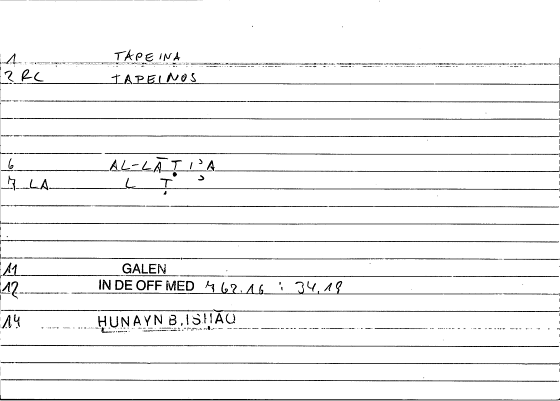 1 TAPEINA
2 RC TAPEINOS
6 AL-LĀṬIʾA
7 LA L Ṭ ʾ
11 GALEN
12 IN DE OFF MED 762.16 : 34.18
14 HUNAYN B. ISḤĀQ